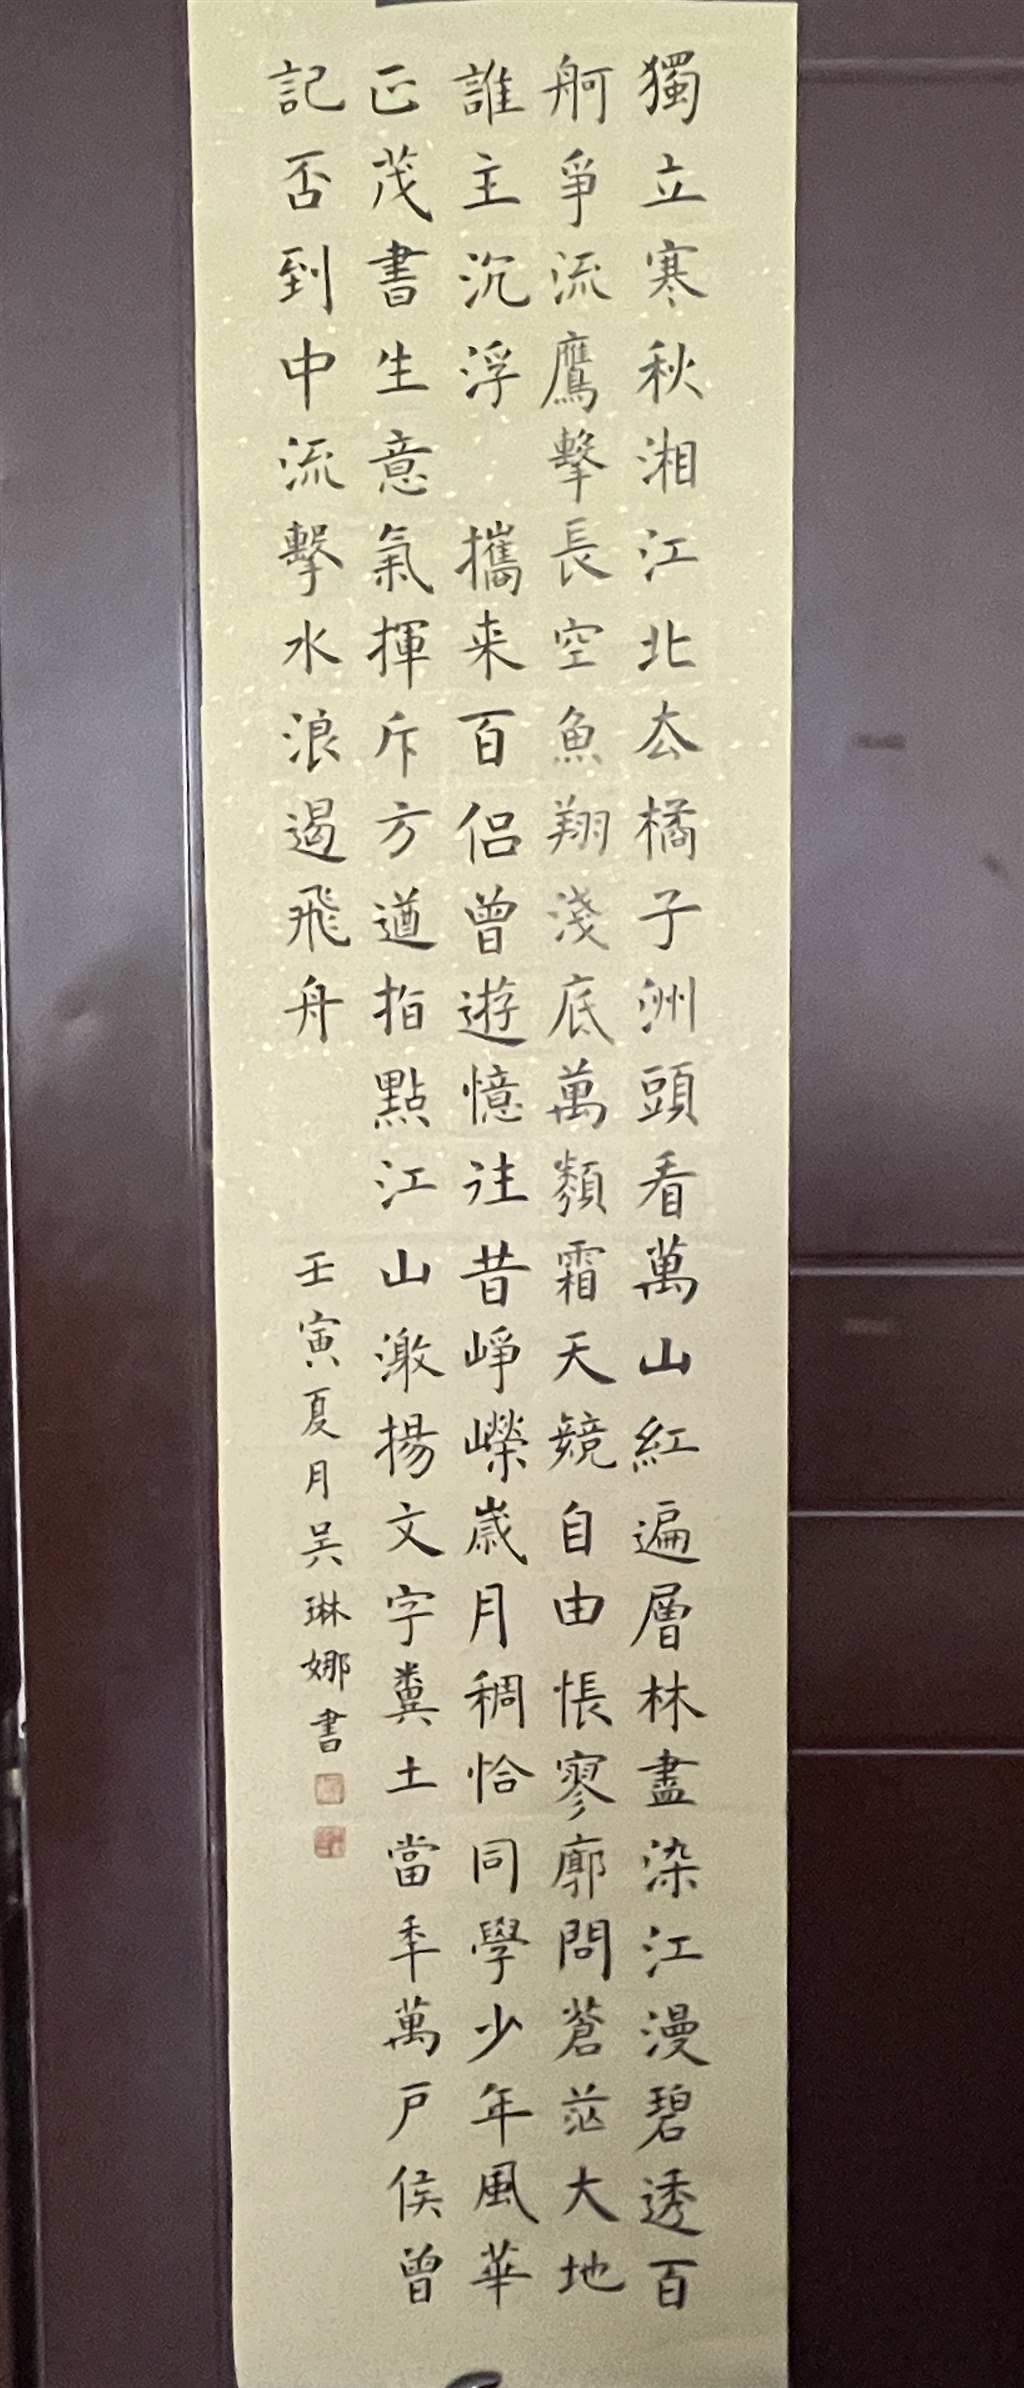 獨立寒秋湘江北去橘子洲頭看萬山紅遍層林盡染江漫碧透百
舸爭流鷹擊長空魚翔淺底萬類霜天競自由悵寥廓問蒼茫大地
誰主沉浮 攜来百侣曾遊憶往昔崢嶸歲月稠恰同學少年風華
正茂書生意氣揮斥方遒指點江山激揚文字糞土當年萬戸侯曾
記否到中流擊水浪遏飛舟
壬寅夏月吴琳娜書